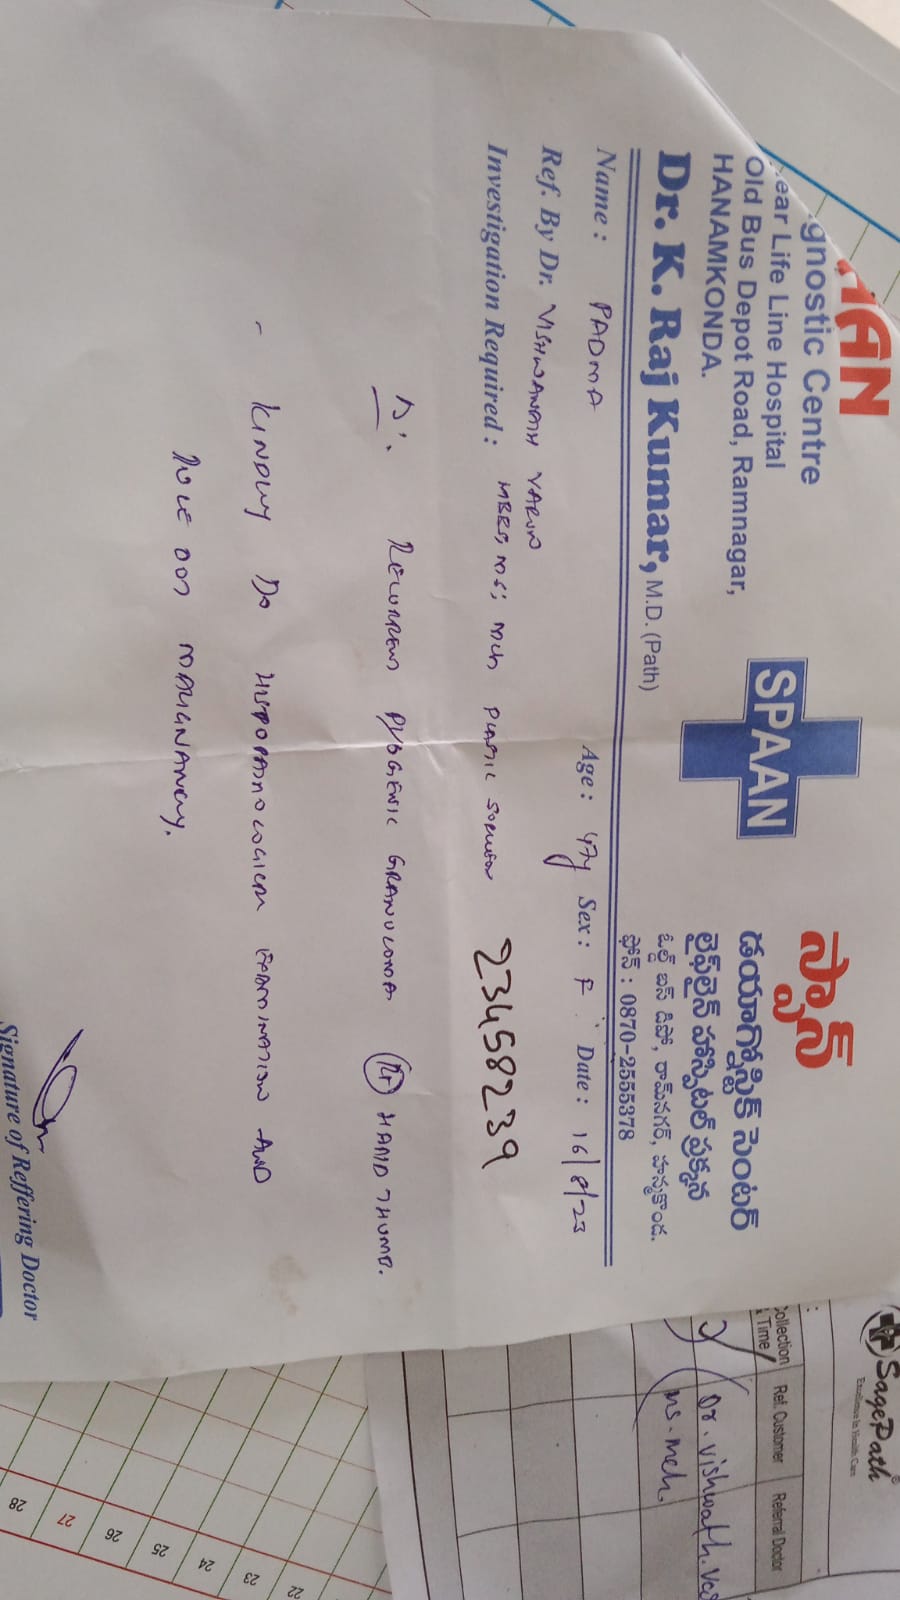 AN
gnostic Centre
ear Life Line Hospital
Old Bus Depot Road, Ramnagar,
HANAMKONDA.
SPAAN
స్పాన్
డయాగ్నోస్టిక్ సెంటర్
లైఫ్‌లైన్ హాస్పిటల్ ప్రక్కన
ఓల్డ్ బస్ డిపో, రామ్‌నగర్, హన్మకొండ.
ఫోన్ : 0870-2555378
Dr. K. Raj Kumar, M.D. (Path)
Name : PADMA Age : 47y Sex : F Date : 16/8/23
Ref. By Dr. VISHWANATH VARUN
Investigation Required : MBBS, MS; MCh PLASTIC SURGEON
23458239
RECURRENT PYOGENIC GRANULOMA Rt HAND THUMB.
- KINDLY DO HISTOPATHOLOGICAL EXAMINATION AND
RULE OUT MALIGNANCY.
Signature of Reffering Doctor
SagePath
Excellence in Health Care
ollection
Time
Ref. Customer
Referral Doctor
Dr. vishwath. va
(ms. mch.
22
23
24
25
26
27
28